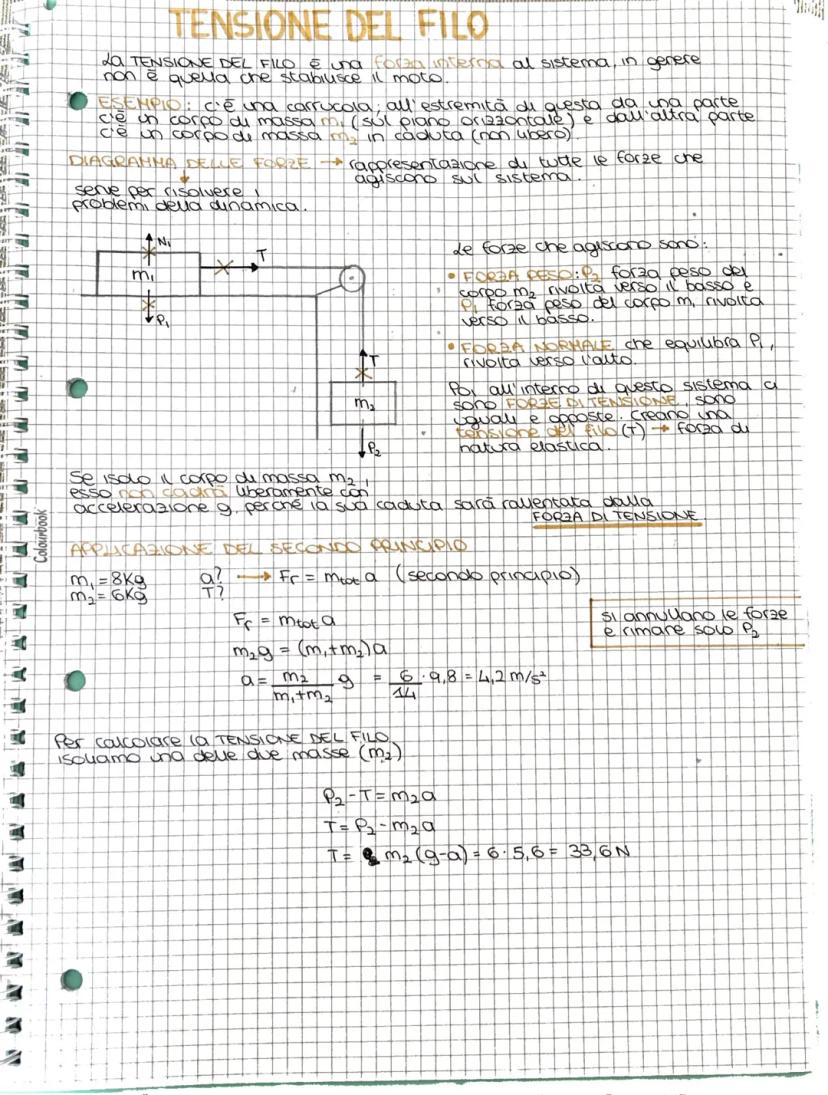 TENSIONE DEL FILO
La TENSIONE DEL FILO è una forza interna al sistema, in genere
non è quella che stabilisce il moto.
ESEMPIO: c'è una carrucola, all'estremità di questa da una parte
c'è un corpo di massa m₁ (sul piano orizzontale) e dall'altra parte
c'è un corpo di massa m₂ in caduta (non libero).
DIAGRAMMA DELLE FORZE → rappresentazione di tutte le forze che
agiscono sul sistema.
serve per risolvere i
problemi della dinamica.
N₁
T
m₁
P₁
T
m₂
P₂
Le forze che agiscono sono:
• FORZA PESO: P₂ forza peso del
corpo m₂ rivolta verso il basso e
P₁ forza peso del corpo m₁ rivolta
verso il basso.
• FORZA NORMALE che equilibra P₁,
rivolta verso l'alto.
Poi all'interno di questo sistema ci
sono FORZE DI TENSIONE, sono
uguali e opposte. Creano una
tensione del filo (T) → forza di
natura elastica.
Se isolo il corpo di massa m₂,
esso non cadrà liberamente con
accelerazione g, perché la sua caduta sarà rallentata dalla
FORZA DI TENSIONE
Colourbook
APPLICAZIONE DEL SECONDO PRINCIPIO
m₁ = 8Kg a? → Fr = mtot a (secondo principio)
m₂ = 6Kg T?
Fr = mtot a
m₂g = (m₁+m₂)a
a = m₂/m₁+m₂ g = 6/14 · 9,8 = 4,2 m/s²
si annullano le forze
e rimane solo P₂
Per calcolare la TENSIONE DEL FILO,
isoliamo una delle due masse (m₂)
P₂ - T = m₂a
T = P₂ - m₂a
T = m₂ (g-a) = 6 · 5,6 = 33,6 N